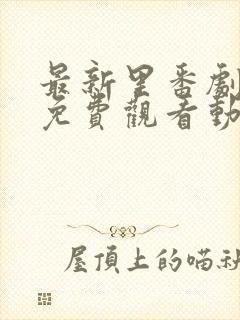 最新里番劇
免費觀看動
屋頂上的喵社